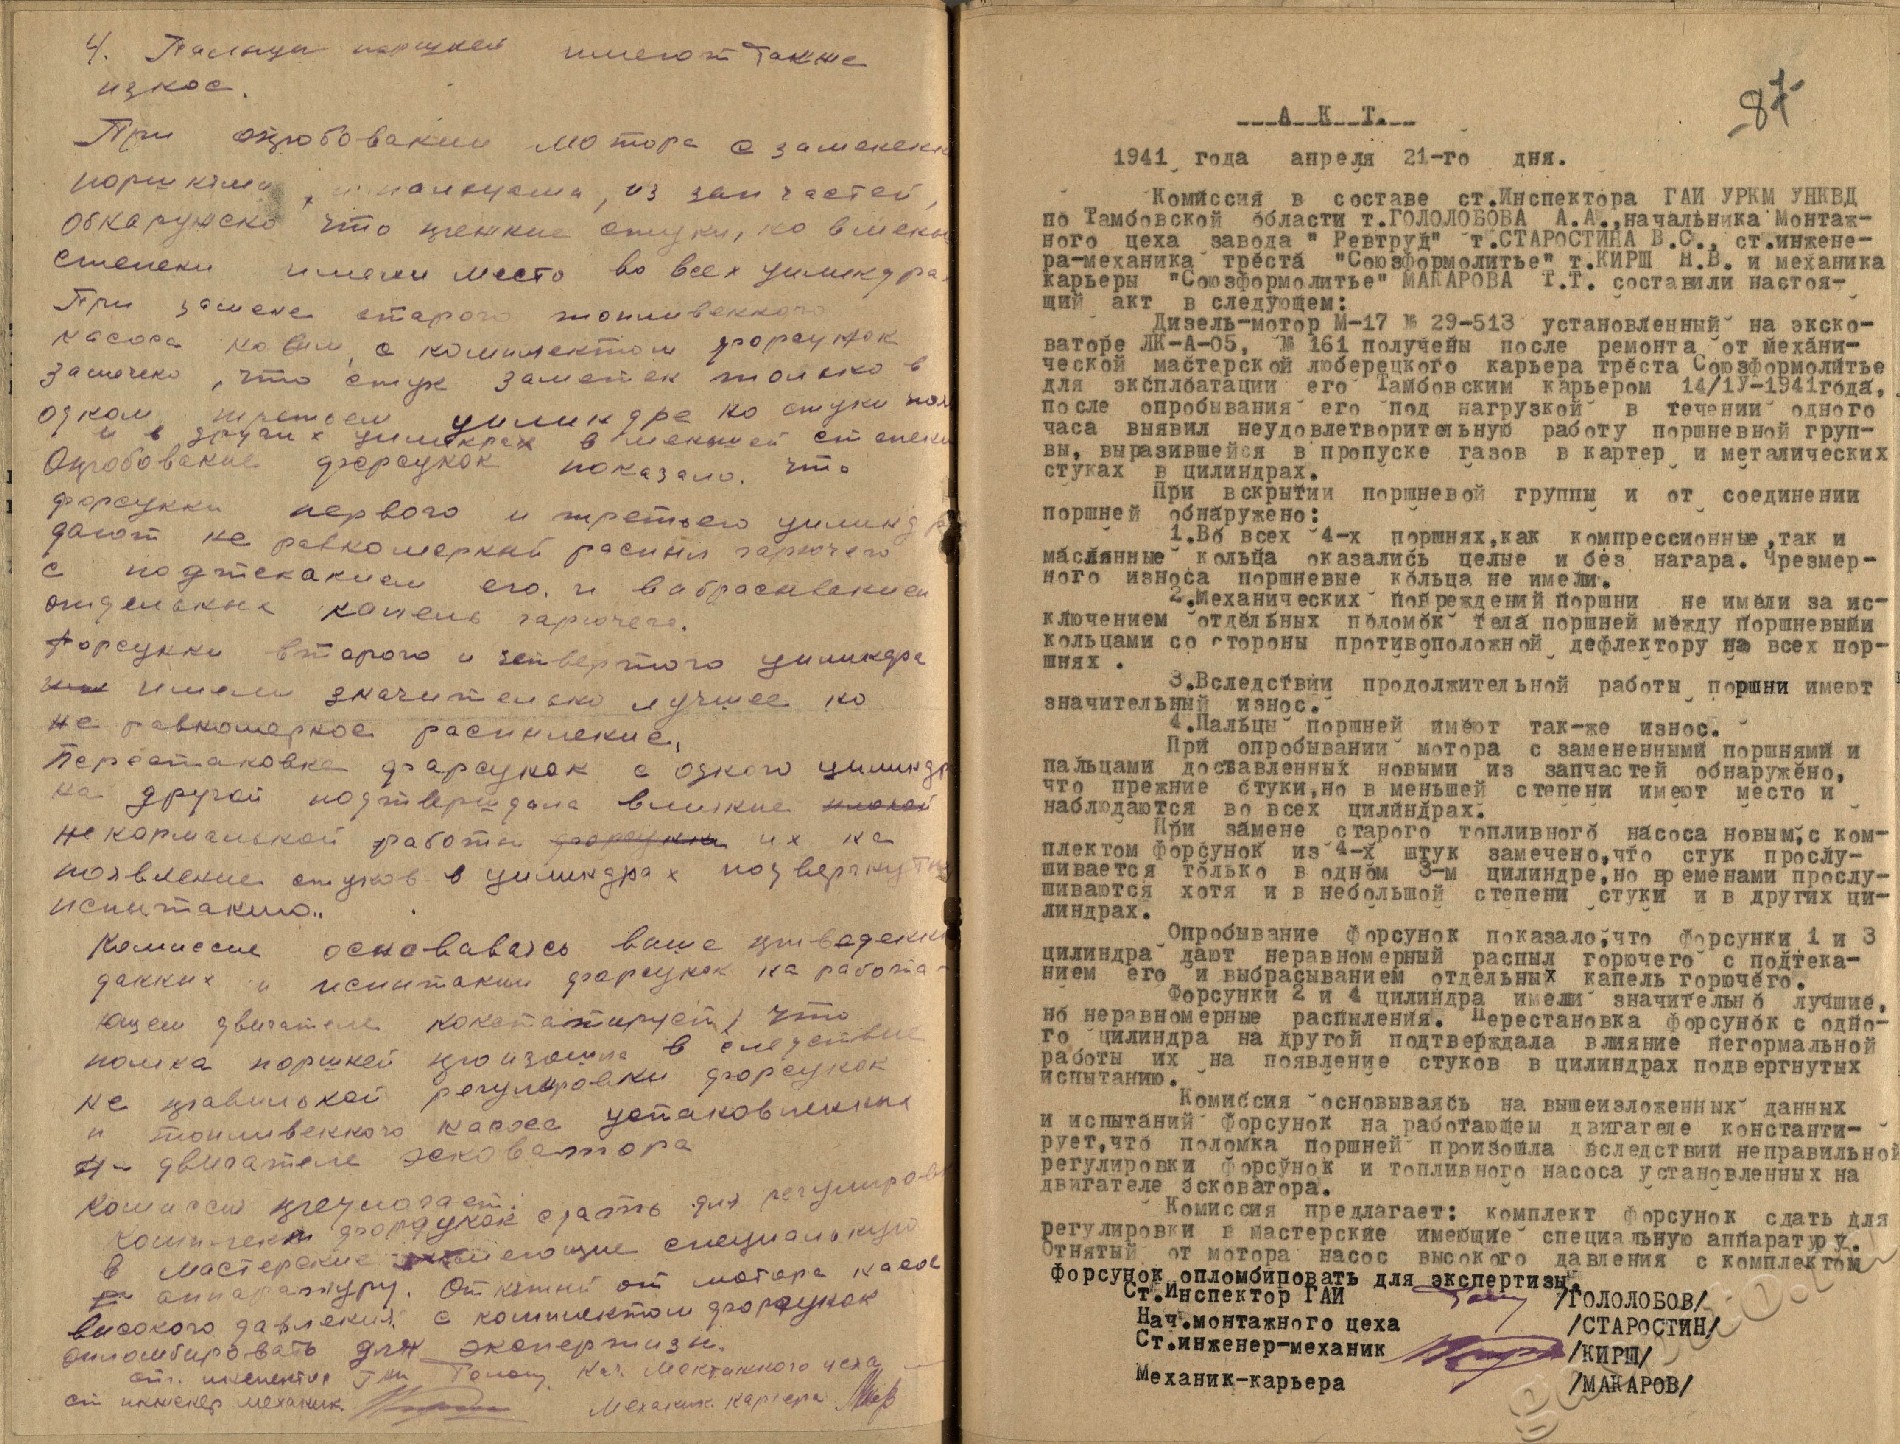 4. Пальцы поршней имеют также
износ.
При опробовании мотора с заменен
поршнями, и пальцами, из зап частей,
обнаружено что прежние стуки, но в мень
степени имели место во всех цилиндрах
При замене старого топливенного
насоса новым, с комплектом форсунок
замечено, что стук заметен только в
одном третьем цилиндре но стуки
и в других цилиндрах в меньшей степени
Опробование форсунок показало. что
форсунки первого и третьего цилиндр
дают не равномерный распыл горючего
с подтеканием его. и выбрасыванием
отдельных капель горючего.
Форсунки второго и четвертого цилиндра
имели значительно лучшее но
не равномерное распыление.
Перестановка форсунок с одного цилиндр
на другой подтверждала влияние
не нормальной работы их на
появление стуков в цилиндрах подвергнутых
испытанию..
Комиссия основываясь выше приведенны
данных и испытании форсунок на работа-
ющем двигателе констатирует, что
ломка поршней произошла в следствие
не правильной регулировки форсунок
и топливенного насоса установленных
двигателе эсковатора
Комиссия предлагает:
Комплект форсунок сдать для регулировк
в мастерские имеющие специальную
аппаратуру. Отнятый от мотора насос
высокого давления с комплектом форсунок
опломбировать для экспертизы.
ст. инспектор ГАИ Нач. Монтажного цеха
ст инженер механик. Механик карьера
87
А К Т.
1941 года апреля 21-го дня.
Комиссия в составе ст.Инспектора ГАИ УРКМ УНКВД
по Тамбовской области т.ГОЛОЛОБОВА А.А.,начальника Монтаж-
ного цеха завода " Ревтруд" т.СТАРОСТИНА В.С., ст.инжене-
ра-механика треста "Союзформолитье" т.КИРШ Н.В. и механика
карьеры "Союзформолитье" МАКАРОВА Т.Т. составили настоя-
щий акт в следующем:
Дизель-мотор М-17 № 29-513 установленный на экско-
ваторе ЛК-А-05, № 161 получены после ремонта от механи-
ческой мастерской люберецкого карьера треста Союзформолитье
для эксплоатации его Тамбовским карьером 14/1У-1941года,
после опробывания его под нагрузкой в течении одного
часа выявил неудовлетворительную работу поршневной груп-
вы, выразившейся в пропуске газов в картер и металических
стуках в цилиндрах.
При вскрытии поршневой группы и от соединении
поршней обнаружено:
1.Во всех 4-х поршнях,как компрессионные,так и
маслянные кольца оказались целые и без нагара. Чрезмер-
ного износа поршневые кольца не имели.
2.Механических повреждений поршни не имели за ис-
ключением отдельных поломок тела поршней между поршневыми
кольцами со стороны противоположной дефлектору на всех пор-
шнях .
3.Вследствии продолжительной работы поршни имеют
значительный износ.
4.Пальцы поршней имеют так-же износ.
При опробывании мотора с замененными поршнями и
пальцами доставленных новыми из запчастей обнаружено,
что прежние стуки,но в меньшей степени имеют место и
наблюдаются во всех цилиндрах.
При замене старого топливного насоса новым,с ком-
плектом форсунок из 4-х штук замечено,что стук прослу-
шивается только в одном 3-м цилиндре,но временами прослу-
шиваются хотя и в небольшой степени стуки и в других ци-
линдрах.
Опробывание форсунок показало,что форсунки 1 и 3
цилиндра дают неравномерный распыл горючего с подтека-
нием его и выбрасыванием отдельных капель горючего.
Форсунки 2 и 4 цилиндра имели значительно лучшие,
но неравномерные распыления. Перестановка форсунок с одно-
го цилиндра на другой подтверждала влияние негормальной
работы их на появление стуков в цилиндрах подвергнутых
испытанию.
Комиссия основываясь на вышеизложенных данных
и испытаний форсунок на работающем двигателе константи-
рует,что поломка поршней произошла вследствии неправильной
регулировки форсунок и топливного насоса установленных на
двигателе эсковатора.
Комиссия предлагает: комплект форсунок сдать для
регулировки в мастерские имеющие специальную аппаратуру.
Отнятый от мотора насос высокого давления с комплектом
форсунок опломбиповать для экспертизы.
Ст.Инспектор ГАИ /ГОЛОЛОБОВ/
Нач.монтажного цеха /СТАРОСТИН/
Ст.инженер-механик /КИРШ/
Механик-карьера /МАКАРОВ/